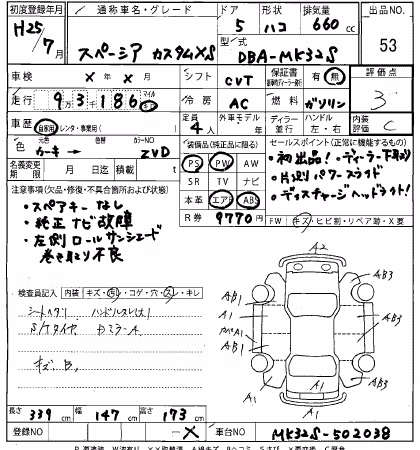 初度登録年月
H25/7月
通称車名・グレード
スペーシア カスタムXS
ドア 形状 排気量
5 ハコ 660cc
型式
DBA-MK32S
出品NO.
53
車検 × 年 × 月
走行 9万3千186
マイル
シフト CVT
保証書 有 無
評価点
3
冷房 AC
燃料 ガソリン
車歴 自家用 レンタ・事業用( )
定員 4人
外車モデル 年
ディーラー 並行
ハンドル 左・右
内装評価 C
色 元色 色替 カラーNO
ZVD
名義変更期限 月 日迄 積 才
装備品(純正品に限る)
PS PW AW
SR TV ナビ
本革 エアB ABS
R券 9770円
セールスポイント(正常に機能するもの)
・初出品!・ディーラー下取り
・片側パワースライド
・ディスチャージヘッドライト!
FW キズ・ヒビ割・リペア跡・X要
注意事項(欠品・修復・不具合箇所および状態)
・スペアキーなし
・純正ナビ故障
・左側ロールサンシェード
巻き取り不良
検査員記入 内装 キズ・汚れ・コゲ・穴・スレ・キレ
シートヘタリ ハンドルスレ(大)
S/Tタイヤ
キズ、B。
A2
AB3
AB1
A1
AB1
A1
AB3
AB3
A1
AB3
A1
長さ 339cm 幅 147cm 高さ 173cm
登録NO —×
車台NO MK32S-502038